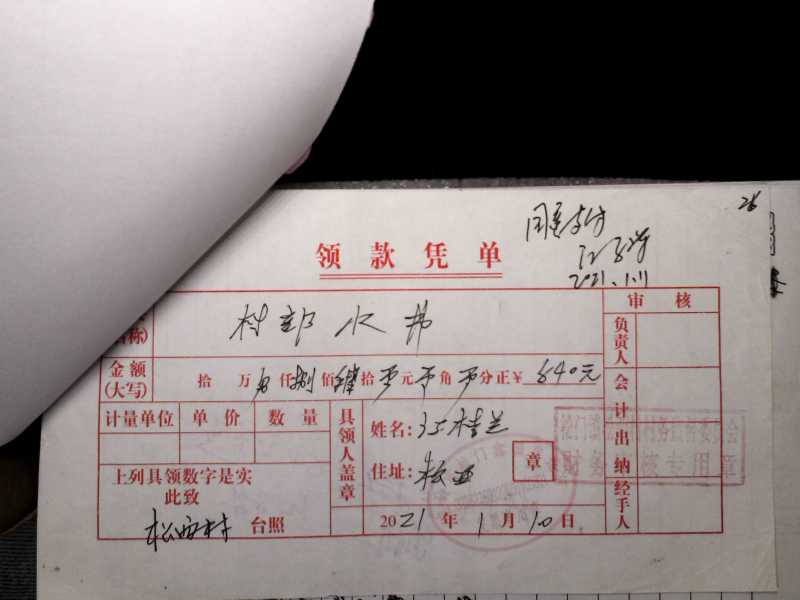 26
同意支付
2021.1.11
领款凭单
审核
名称)
村部水费
负责人
金额
(大写)
拾 万 仟捌佰肆拾零元零角零分正¥840元
会计
出纳
经手人
计量单位 单价 数量
具领人盖章
姓名:江桂兰
住址:松西
章
上列具领数字是实
此致
松西村 台照
2021年1月10日
财务审核专用章